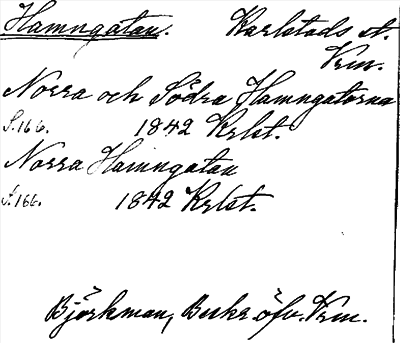 Hamngatan. Karlstads st.
Vrm.
Norra och Södra Hamngatorna
S.166. 1842 Krlst.
Norra Hamngatan
S.166. 1842 Krlst.
Björkman, Beskr. öfv. Vrm.